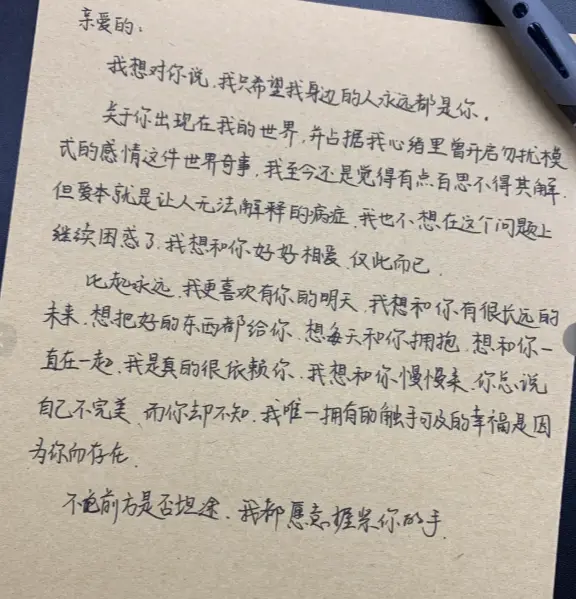 亲爱的:
我想对你说,我只希望我身边的人永远都是你.
关于你出现在我的世界,并占据我心绪里曾开启勿扰模
式的感情这件世界奇事,我至今还是觉得有点百思不得其解.
但爱本就是让人无法解释的病症,我也不想在这个问题上
继续困惑了,我想和你好好相爱,仅此而已.
比起永远,我更喜欢有你的明天,我想和你有很长远的
未来,想把好的东西都给你,想每天和你拥抱,想和你一
直在一起,我是真的很依赖你,我想和你慢慢来,你总说
自己不完美,而你却不知,我唯一拥有的触手可及的幸福是因
为你而存在.
不论前方是否坦途,我都愿意握紧你的手.